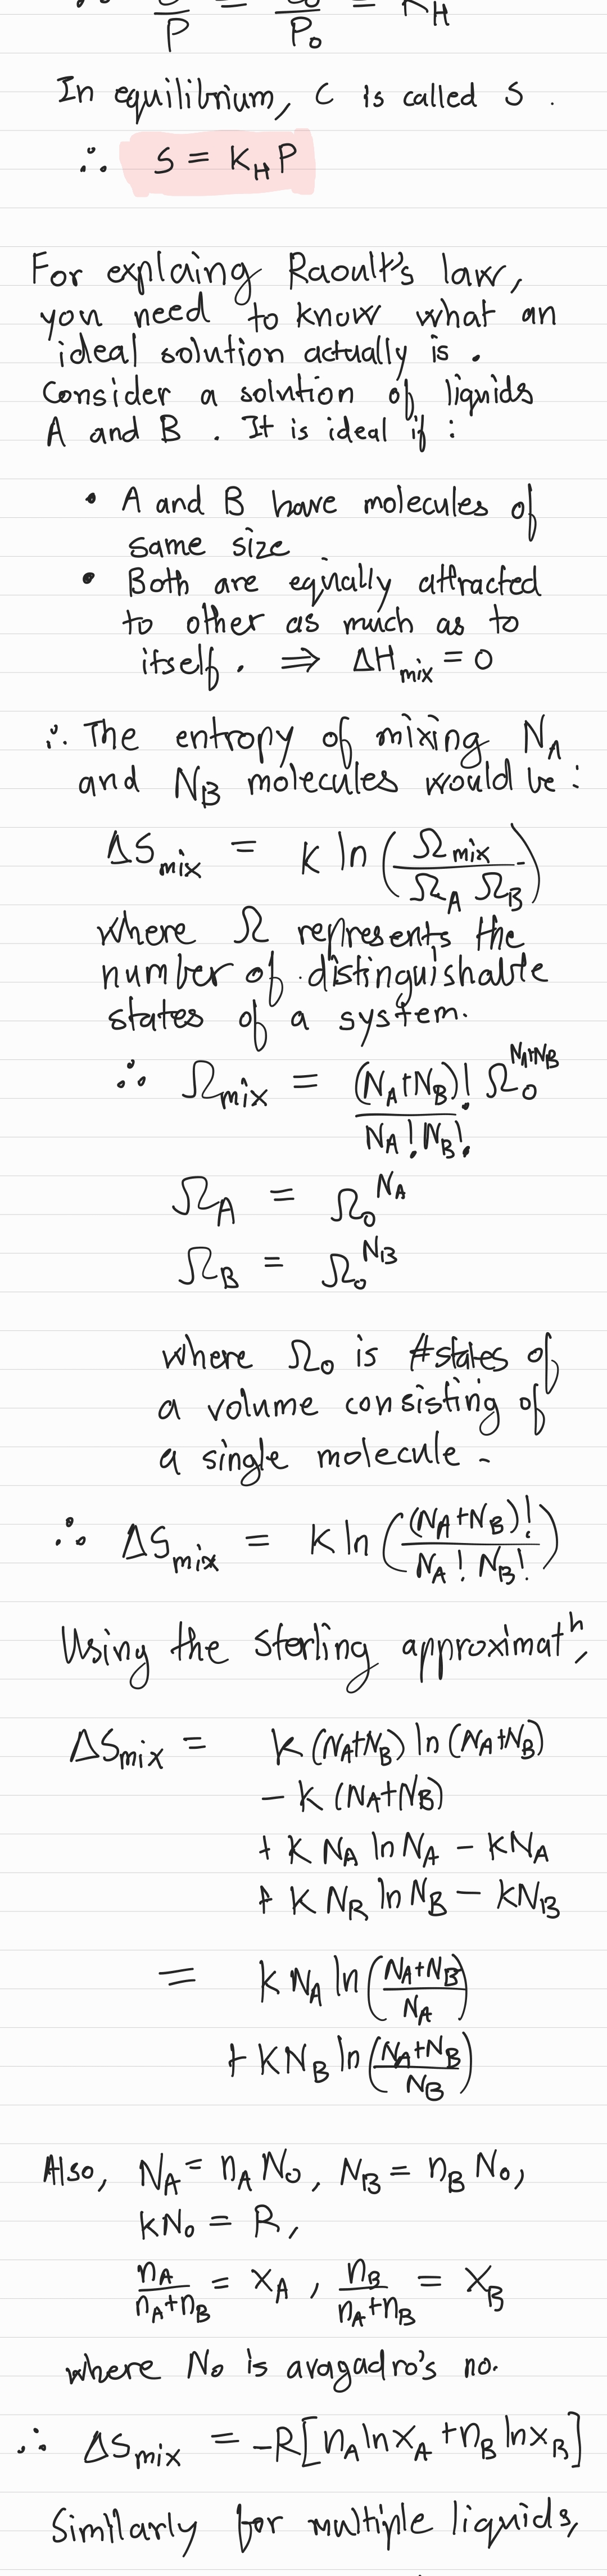 ∴ C/P = C₀/P₀ = K_H
In equilibrium, C is called S .
∴ S = K_H P
For explaing Raoult's law,
you need to know what an
ideal solution actually is .
Consider a solution of liquids
A and B . It is ideal if :
• A and B have molecules of
same size
• Both are equally attracted
to other as much as to
itself . ⇒ ΔH_mix = 0
∴ The entropy of mixing N_A
and N_B molecules would be :
ΔS_mix = K ln (Ω_mix / Ω_A Ω_B)
where Ω represents the
number of distinguishable
states of a system.
∴ Ω_mix = (N_A+N_B)! / N_A! N_B! Ω₀^(N_A+N_B)
Ω_A = Ω₀^N_A
Ω_B = Ω₀^N_B
where Ω₀ is #states of
a volume consisting of
a single molecule -
∴ ΔS_mix = K ln ((N_A+N_B)! / N_A! N_B!)
Using the sterling approximatⁿ,
ΔS_mix = K (N_A+N_B) ln (N_A+N_B)
- K (N_A+N_B)
+ K N_A ln N_A - K N_A
+ K N_B ln N_B - K N_B
= K N_A ln ((N_A+N_B) / N_A)
+ K N_B ln ((N_A+N_B) / N_B)
Also, N_A = n_A N₀, N_B = n_B N₀,
K N₀ = R,
n_A/(n_A+n_B) = x_A , n_B/(n_A+n_B) = x_B
where N₀ is avagadro's no.
∴ ΔS_mix = -R[n_A ln x_A + n_B ln x_B]
Similarly for multiple liquids,